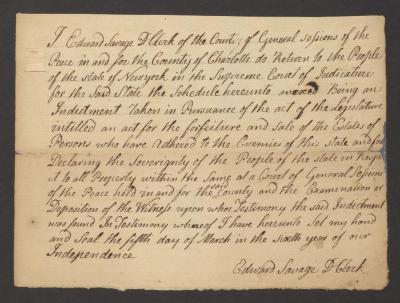 I Edward Savage D Clerk of the Court of General Sessions of the
Peace in and for the County of Charlotte do Return to the People
of the State of Newyork in the Supreme Court of Judicature
for the Said State the Schedule hereunto anexed Being an
Indictment Taken in Pursuance of the act of the Legislature
intitled an act for the forfeiture and Sale of the Estates of
Persons who have Adhered to the Enemies of this State and for
Declaring the Soverignty of the People of the State in Respect
to all Property within the Same at a Court of General Sessions
of the Peace held in and for the said County and the Examination or
Deposition of the Witness upon whos Testimony the said Indictment
was found In Testimony whereof I have hereunto Set my hand
and Seal the fifth day of March in the sixth year of our
Independence
Edward Savage D Clerk